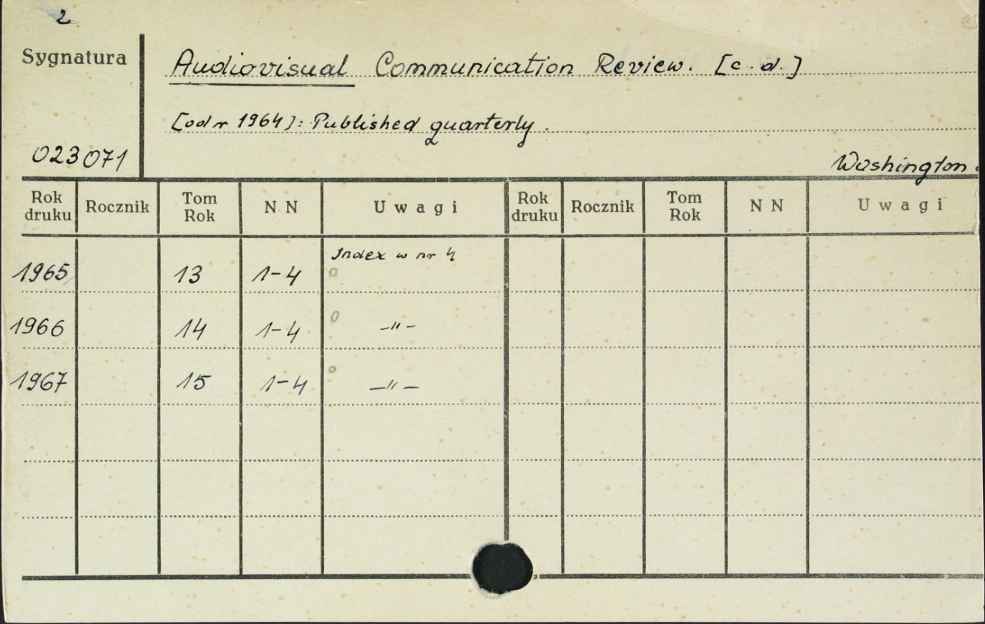 2
Sygnatura
Audiovisual Communication Review. [c.d.]
[od r 1964]: Published quarterly.
023071
Washington.
Rok druku Rocznik Tom Rok N N Uwagi Rok druku Rocznik Tom Rok N N Uwagi
1965 13 1-4 Index w nr 4
1966 14 1-4 -"-
1967 15 1-4 -"-